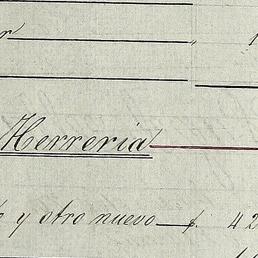 r
Herreria
y otro nuevo f. 42